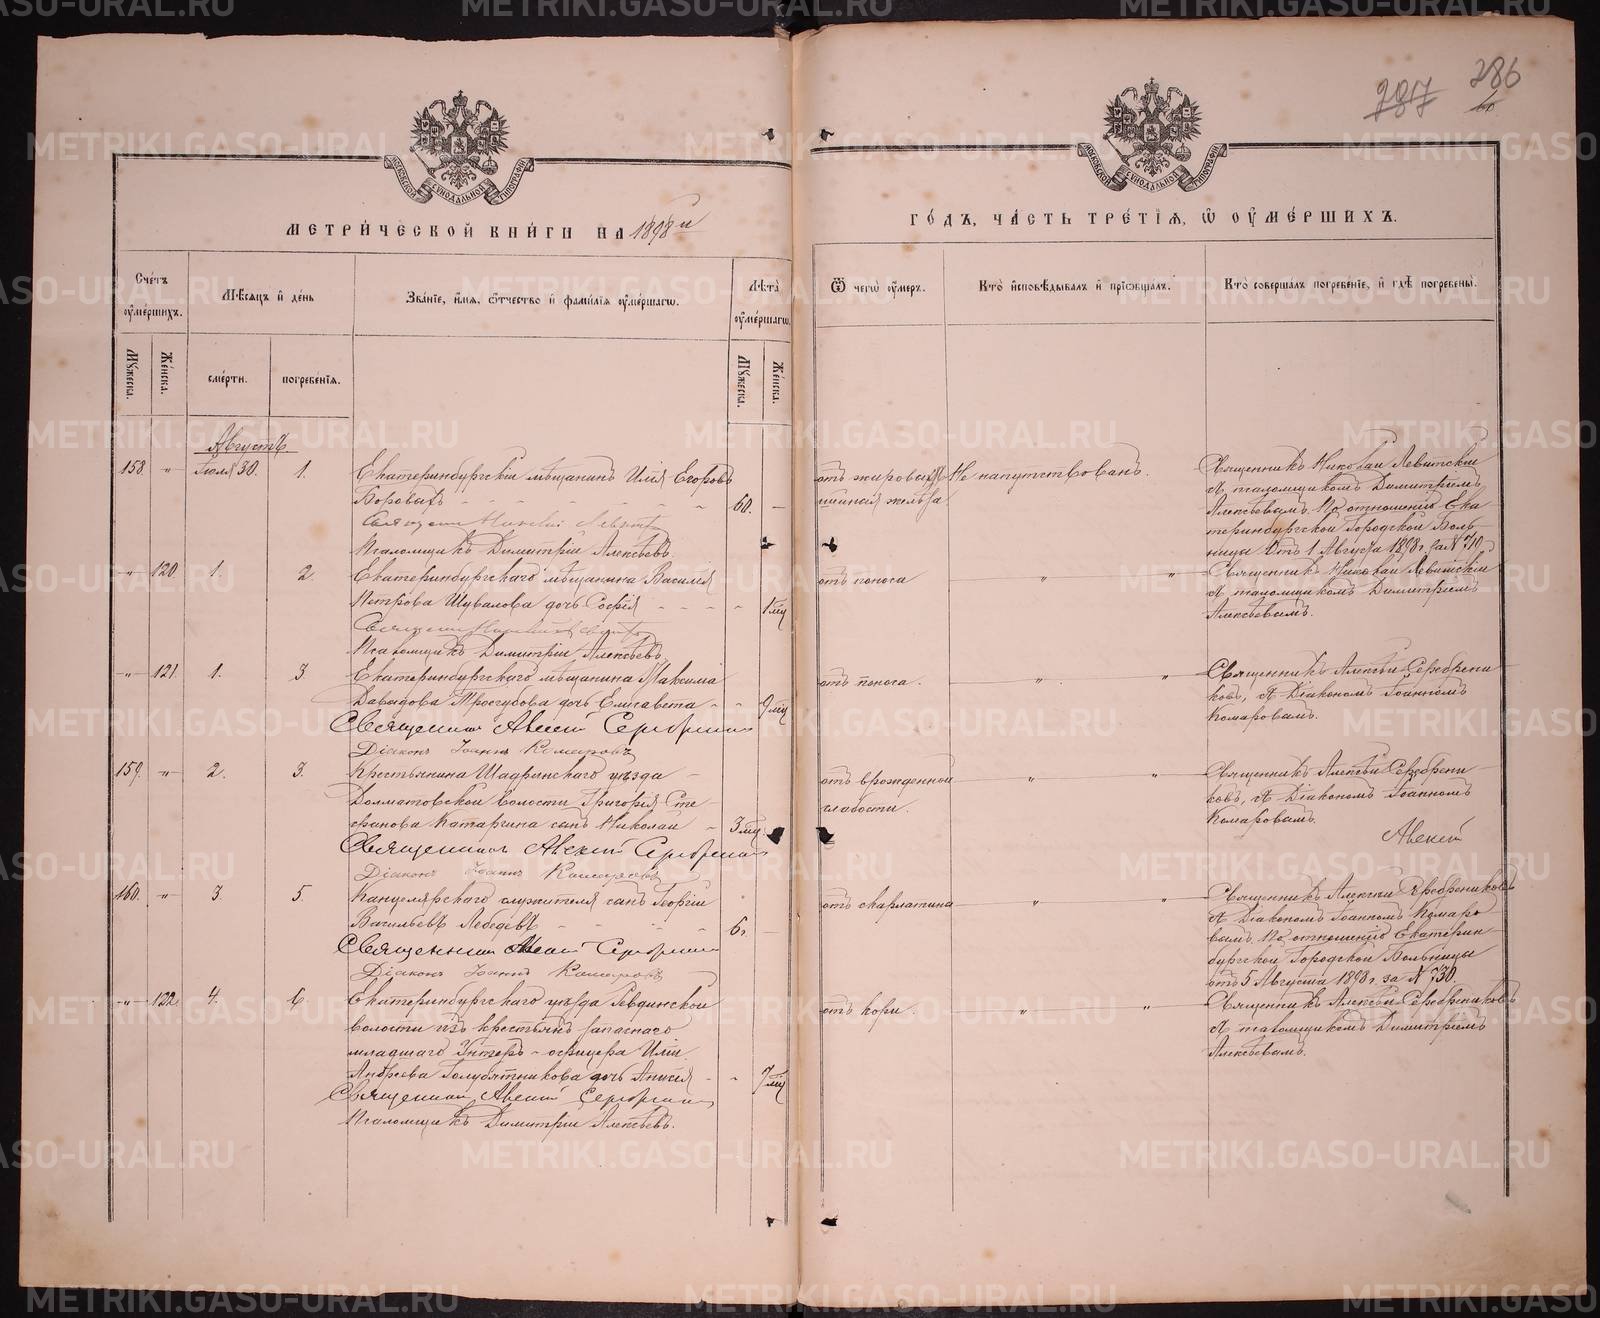 286
287
МЕТРИ́ЧЕСКОЙ КНИ́ГИ НА 1898й
ГО́ДЪ, ЧА́СТЬ ТРЕ́ТІѦ, Ѿ ОУМЕ́РШИХЪ.
МОСКОВСКОЙ СѴНОДАЛЬНОЙ ТИПОГРАФІИ
МОСКОВСКОЙ СѴНОДАЛЬНОЙ ТИПОГРАФІИ
Сче́тъ оуме́ршихъ.
Мѣ́сяцъ и де́нь
Зва́ніе, и́мя, ѻ́тчество и фами́лія оуме́ршагѡ.
Лѣ́та оуме́ршагѡ.
Ѿ чегѡ̀ оу́меръ.
Кто̀ и҆сповѣ́дывалъ и҆ прїѡбща́лъ.
Кто̀ соверша́лъ погребе́нїе, и҆ гдѣ̀ погребены̀.
Му́жеска.
Же́нска.
сме́рти.
погребе́нїя.
Му́жеска.
Же́нска.
Августъ.
158. " Іюля 30. 1. Екатеринбургскій мѣщанинъ Илія Егоровъ
Боровать 60. –
Священникъ Николай Левитскій
Псаломщикъ Димитрій Алексѣевъ.
отъ жироваго
Не напутствованъ.
Священникъ Николай Левитскій
съ псаломщикомъ Димитріемъ
Алексѣевымъ. По отношенію Ека-
теринбургской Городской Боль-
ницы отъ 1 Августа 1898 г. за № 710.
" 120 1. 2. Екатеринбургскаго мѣщанина Василія
Петрова Шувалова дочь Софія – – " 1 мц
Священникъ Николай Левитскій
Псаломщикъ Димитрій Алексѣевъ.
отъ поноса " "
Священникъ Николай Левитскій
съ псаломщикомъ Димитріемъ
Алексѣевымъ.
" 121. 1. 3. Екатеринбургскаго мѣщанина Максима
Давыдова Трегубова дочь Елизавета - " 9 мц
Священникъ Алексій Серебрениковъ
Діаконъ Іоаннъ Комаровъ
отъ поноса. " "
Священникъ Алексѣй Серебрени-
ковъ, съ Діакономъ Іоанномъ
Комаровымъ.
159. " 2. 3. Крестьянина Шадринскаго уѣзда
Долматовской волости Григорія Сте-
фанова Катаргина сынъ Николай - 3 мц.
Священникъ Алексій Серебрениковъ
Діаконъ Іоаннъ Комаровъ
отъ врожденной
слабости. " "
Священникъ Алексѣй Серебрени-
ковъ, съ Діакономъ Іоанномъ
Комаровымъ.
Алексій
160. " 3. 5. Канцелярскаго служителя сынъ Георгій
Васильевъ Лебедевъ 6. –
Священникъ Алексій Серебрениковъ
Діаконъ Іоаннъ Комаровъ
отъ скарлатина " "
Священникъ Алексѣй Серебрениковъ
съ Діакономъ Іоанномъ Комаро-
вымъ. По отношенію Екатерин-
бургской Городской Больницы
отъ 5 Августа 1898 г. за № 730.
" 122. 4. 6. Екатеринбургскаго уѣзда Ревдинской
волости изъ крестьянъ запаснаго
младшаго Унтеръ-офицера Иліи
Андреева Голубятникова дочь Анисія - " 7 мц
Священникъ Алексій Серебрениковъ
Псаломщикъ Димитрій Алексѣевъ.
отъ кори. " "
Священникъ Алексѣй Серебрениковъ
съ псаломщикомъ Димитріемъ
Алексѣевымъ.
METRIKI.GASO-URAL.RU